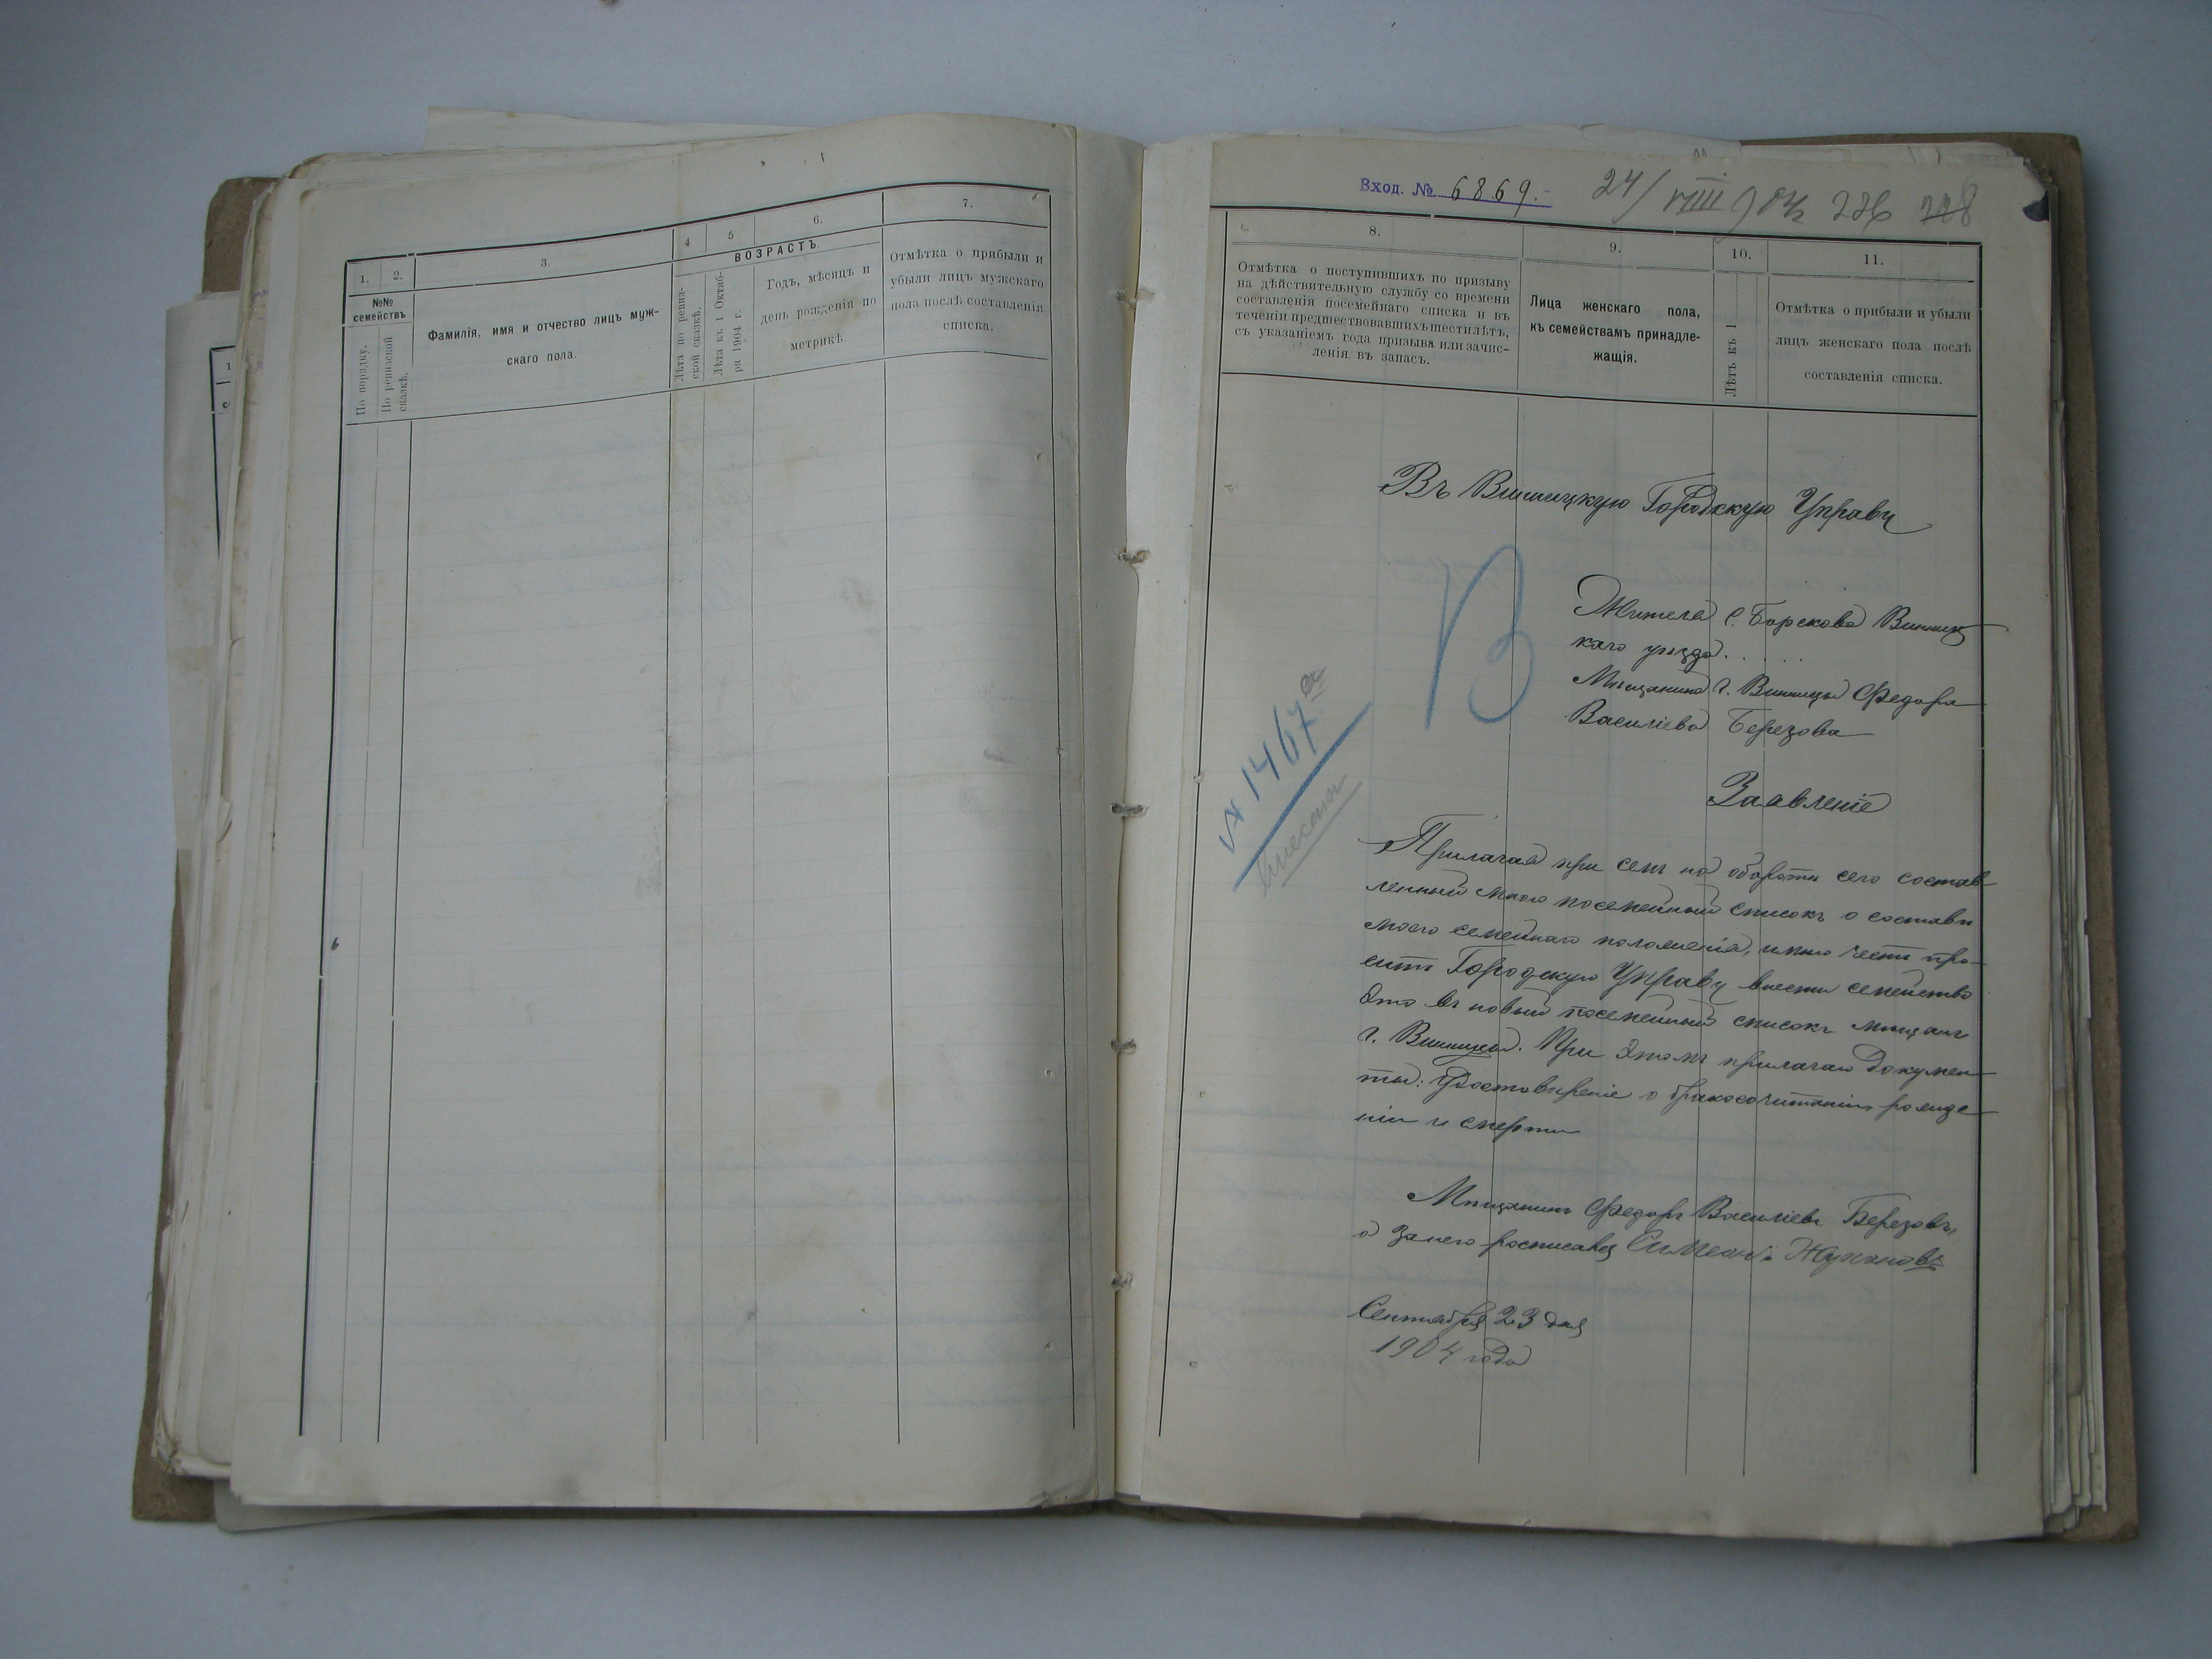 1.
2.
3.
4
5
6.
7.
№№
семействъ
По порядку.
По ревизской
сказкѣ.
Фамилія, имя и отчество лицъ муж-
скаго пола.
ВОЗРАСТЪ.
Лѣта по ревиз-
ской сказкѣ.
Лѣта къ 1 Октяб-
ря 1904 г.
Годъ, мѣсяцъ и
день рожденія по
метрикѣ.
Отмѣтка о прибыли и
убыли лицъ мужскаго
пола послѣ составленія
списка.
Вход. № 6869.-
24/VIII 904 226 228
8.
9.
10.
11.
Отмѣтка о поступившихъ по призыву
на дѣйствительную службу со времени
составленія посемейнаго списка и въ
теченіи предшествовавшихъ шестилѣтъ,
съ указаніемъ года призыва или зачис-
ленія въ запасъ.
Лица женскаго пола,
къ семействамъ принадле-
жащія.
Лѣтъ къ 1
Отмѣтка о прибыли и убыли
лицъ женскаго пола послѣ
составленія списка.
Въ Винницкую Городскую Управу
В
Жителя с. Борскова Винниц
каго уѣзда . . . . .
Мѣщанина г. Винницы Федора
Василіева Березова
Заявленіе
№ 1467а
внести
Прилагая при семъ на оборотѣ сего состав-
ленный мною посемейный списокъ о составѣ
моего семейнаго положенія, имѣю честь про-
сить Городскую Управу внести семейство
это въ новый посемейный списокъ мѣщанъ
г. Винницы. При этомъ прилагаю докумен-
ты: Удостовѣреніе о бракосочитаніи, рожде-
ніи и смерти
Мѣщанинъ Федоръ Василіевъ Березовъ,
а за него росписался Симеонъ Жупановъ
Сентября 23 дня
1904 года